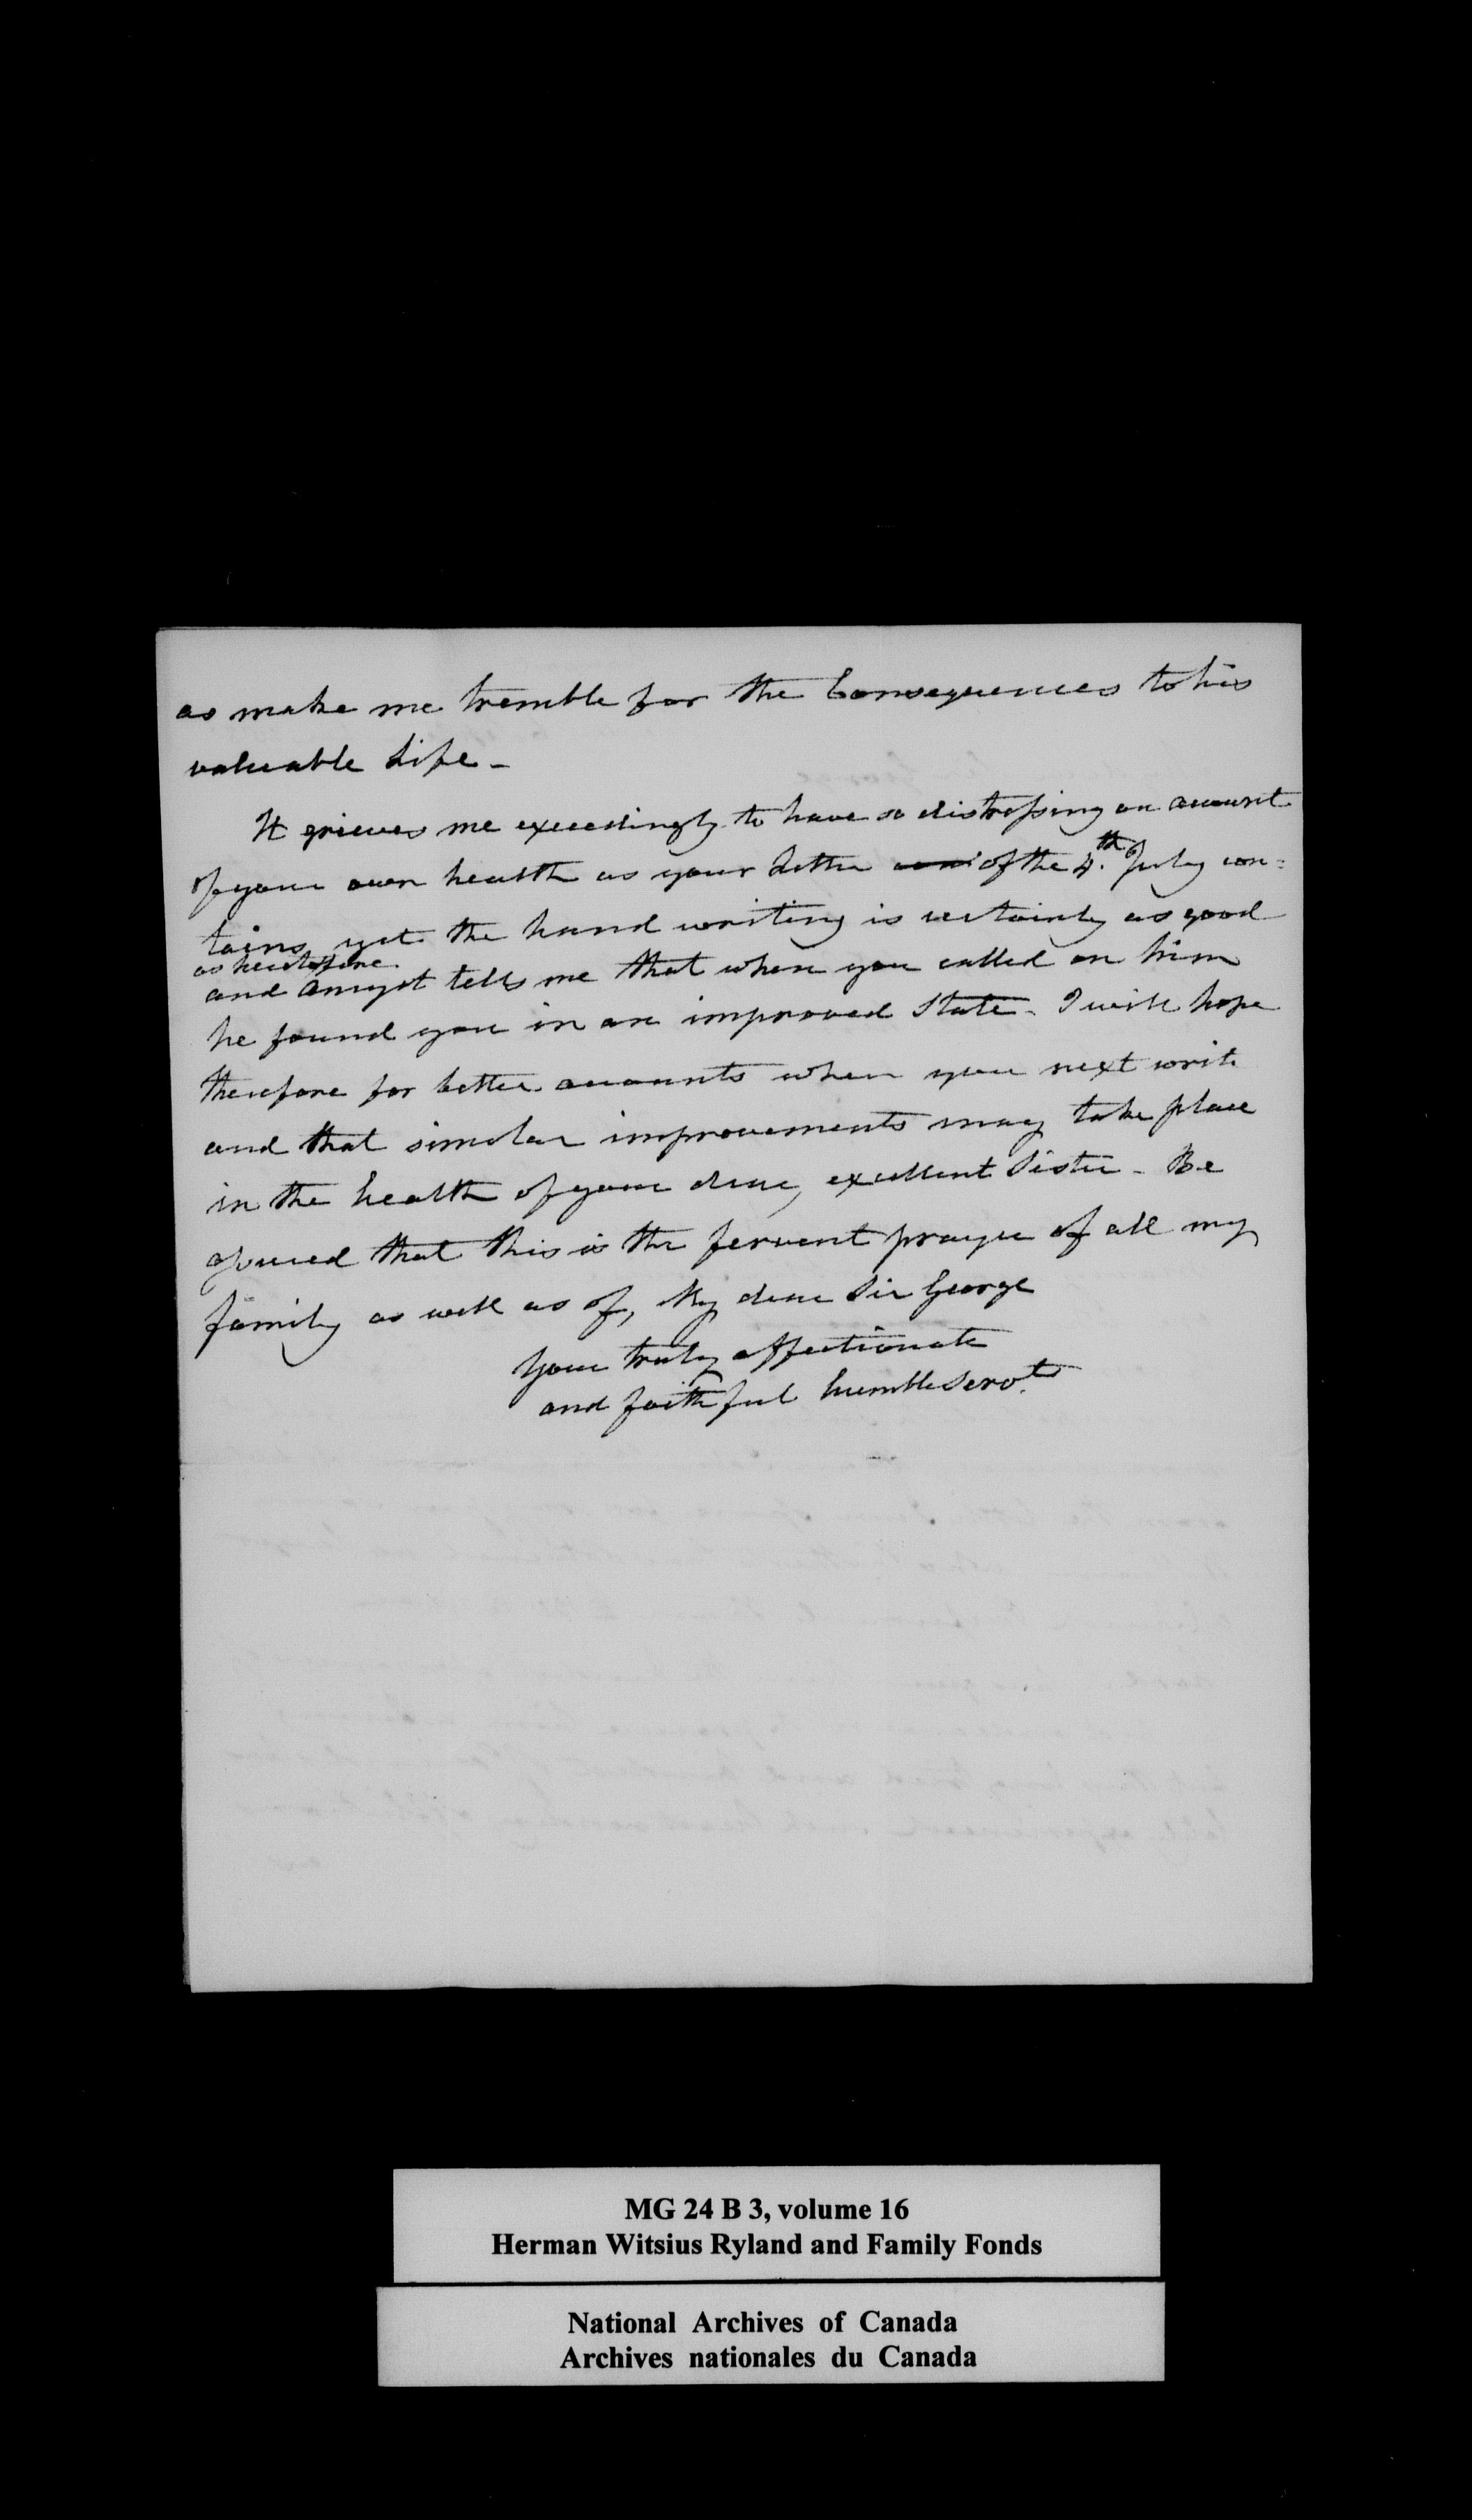 as make me tremble for the Consequences to his
valuable Life -
It grieves me exceedingly to have so distressing an account
of your own health as your Letter of the 4.th July con:
tains, yet the hand writing is certainly as good
as heretofore
and Amyot tells me that when you called on him
he found you in an improved State - I will hope
therefore for better accounts when you next write
and that similar improvements may take place
in the health of your dear, excellent Sister - Be
assured that this is the fervent prayer of all my
family as well as of, My dear Sir George
Your truly affectionate
and faithful humble Servt.
MG 24 B 3, volume 16
Herman Witsius Ryland and Family Fonds
National Archives of Canada
Archives nationales du Canada